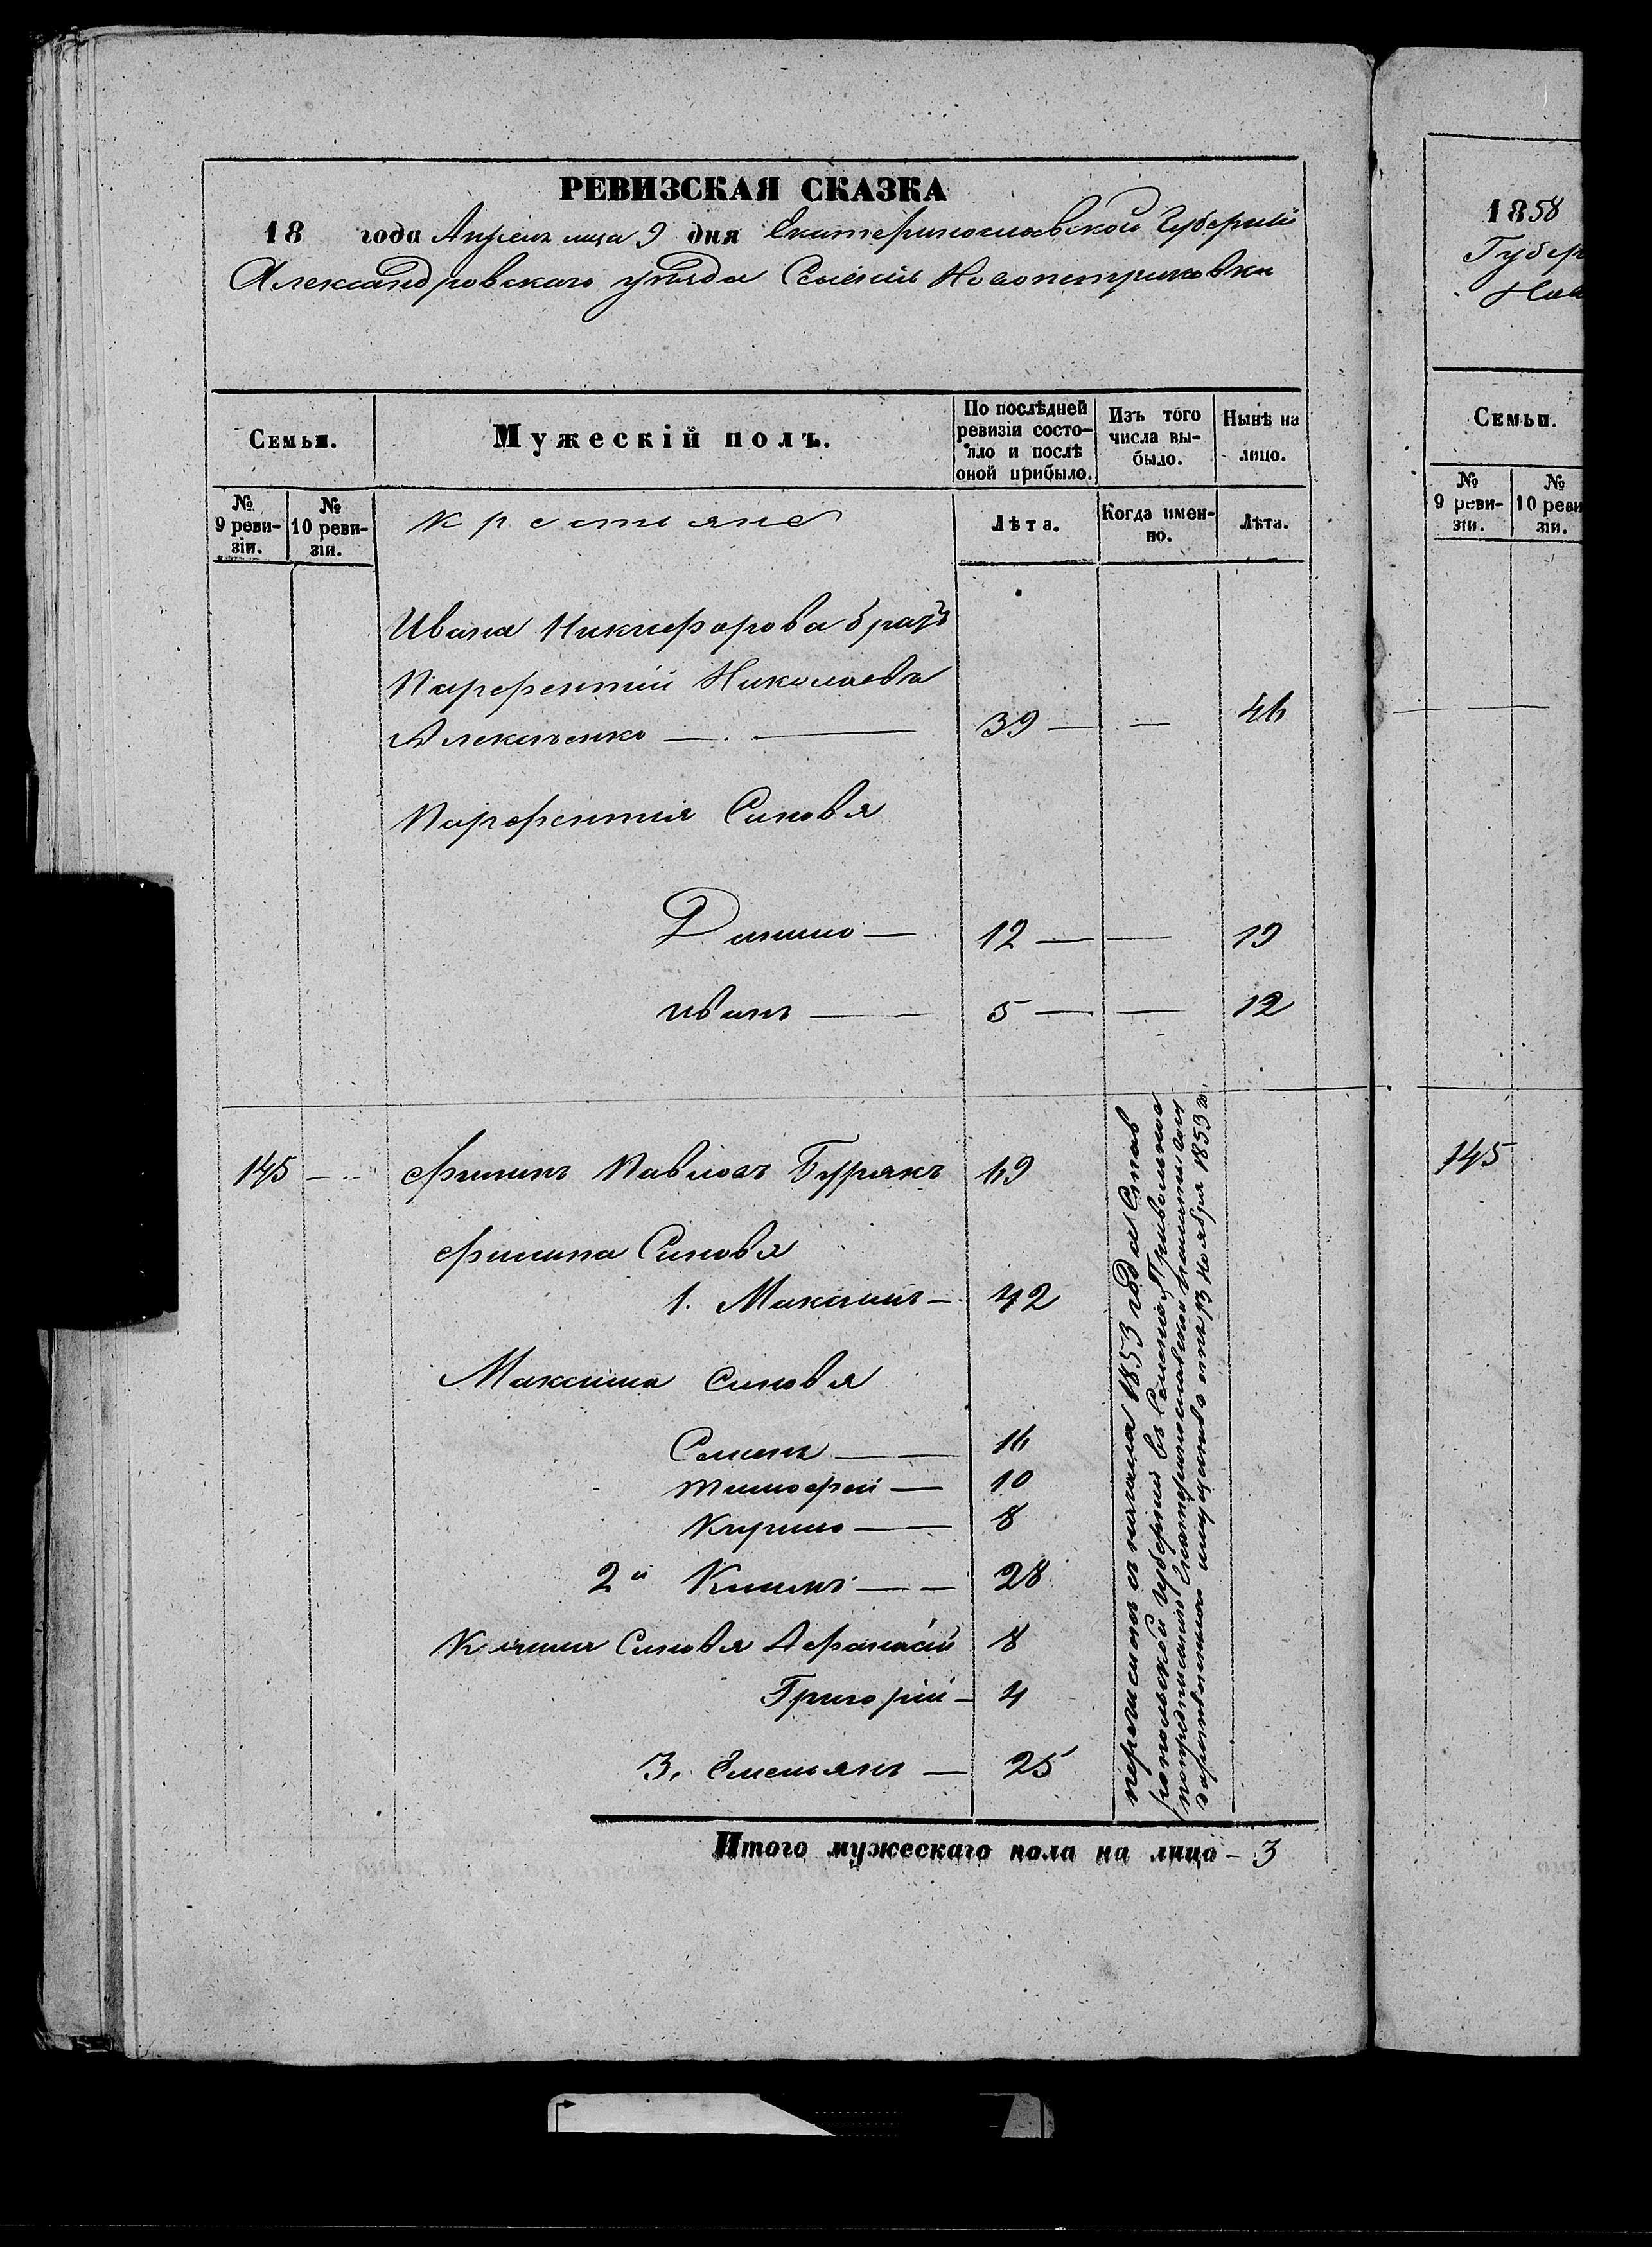 РЕВИЗСКАЯ СКАЗКА
18 года Апреля мца 9 дня Екатеринославской Губерніи
Александровскаго уѣзда Селенія Новопетриковки
Семьи.
Мужескій полъ.
По послѣдней ревизіи состояло и послѣ оной прибыло.
Изъ того числа выбыло.
Нынѣ на лицо.
№ 9 ревизіи.
№ 10 ревизіи.
крестьяне
Лѣта.
Когда именно.
Лѣта.
Ивана Никифорова братъ
Парфентій Николаевъ
Алексѣенко — 39 — — 46
Парфентія Синовья
Данило — 12 — — 19
Иванъ — 5 — — 12
145 — Филипъ Павловъ Бурякъ 69
Филипа Синовья
1. Максимъ — 42
Максима Синовья
Семенъ — 16
Тимофей — 10
Кирило — 8
2й Климъ — 28
Клима Синовья Афанасій 8
Григорій — 4
3. Емельянъ — 25
перечисленъ съ начала 1853 года в Став
ропольской губерніи въ Селеніе Привольное
попредписанію Екатеринославской палаты Гос
ударственныхъ имуществъ отъ 13 Ноября 1853 г.
Итого мужескаго пола на лицо — 3
1858
Губер
Нов
Семьи.
№ 9 ревизіи.
№ 10 реви
зіи.
145